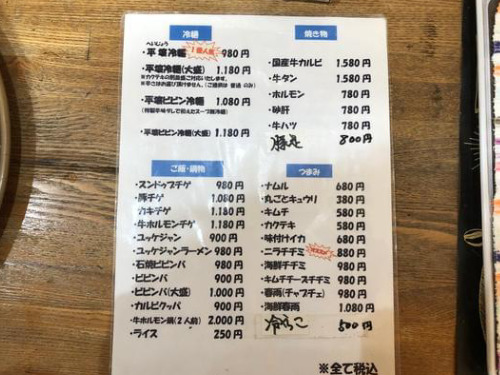 冷麺
へいじょう
・平壌冷麺 1番人気 980円
・平壌冷麺(大盛) 1.180円
・平壌ビビン冷麺 1.080円
・平壌ビビン冷麺(大盛) 1.180円
焼き物
・国産牛カルビ 1.580円
・牛タン 1.580円
・ホルモン 780円
・砂肝 780円
・牛ハツ 780円
豚足 800円
ご飯・鍋物
・スンドゥブチゲ 980円
・豚チゲ 1.080円
・カキチゲ 1.180円
・牛ホルモンチゲ 1.180円
・ユッケジャン 900円
・ユッケジャンラーメン 980円
・石焼ビビンバ 980円
・ビビンバ 900円
・ビビンバ(大盛) 1.000円
・カルビクッパ 900円
・牛ホルモン鍋(2人前) 2.000円
・ライス 250円
つまみ
・ナムル 680円
・丸ごとキュウリ 380円
・キムチ 580円
・カクテキ 580円
・味付けイカ 680円
・ニラチヂミ 880円
・海鮮チヂミ 980円
・キムチチーズチヂミ 980円
・春雨(チャプチェ) 980円
・海鮮春雨 1.080円
500円
※全て税込